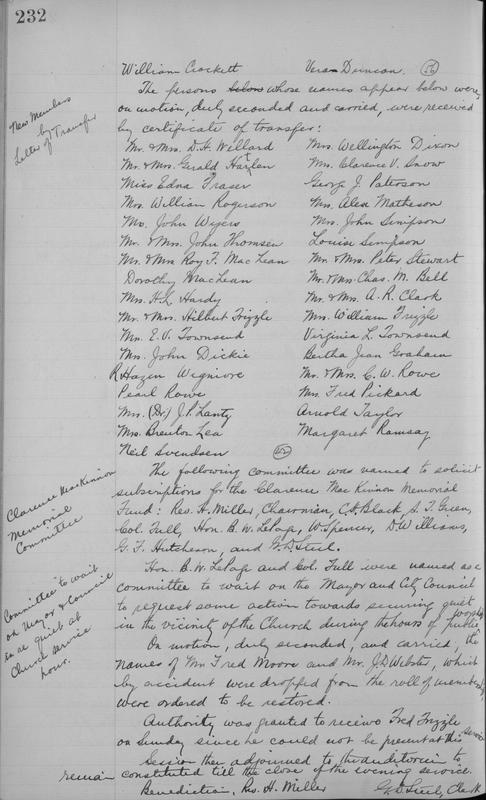 232
William Crockett Vera Duncan. 56
The persons below whose names appear below were,
on motion, duly seconded and carried, were received
by certificate of transfer:
New Members
by
Letter of Transfer
Mr. & Mrs. D. H. Willard Mrs. Wellington Dixon
Mr. & Mrs. Gerald Harlen Mrs. Clarence V. Snow
Miss Edna Fraser George J. Paterson
Mrs. William Rogerson Mrs. Alex Matheson
Mr. John Wyers Mrs. John Simpson
Mr. & Mrs. John Thomsen Louise Simpson
Mr. & Mrs Roy F. MacLean Mr. & Mrs. Peter Stewart
Dorothy MacLean Mr. & Mrs. Chas. M. Bell
Mrs. H. L. Hardy Mr. & Mrs. A. R. Clark
Mr. & Mrs. Hilbert Frizzle Mrs. William Frizzle
Mrs. E. V. Townsend Virginia L. Townsend
Mrs. John Dickie Bertha Jean Graham
R Hazen Wigmore Mr. & Mrs. C. W. Rowe
Pearl Rowe Mrs. Fred Pickard
Mrs. (Dr.) J. P. Lantz Arnold Taylor
Mrs. Brenton Lea Margaret Ramsay
Neil Svendsen 42
Clarence MacKinnon
Memorial
Committee
The following committee was named to solicit
subscriptions for the Clarence MacKinnon Memorial
Fund: Rev. H. Miller, Chairman, C. H. Black, S. T. Green,
Col. Full, Hon. B. W. LePage, W. Spencer, D. Williams,
G. F. Hutcheson, and G. D. Steel.
Committee to wait
on Mayor & Council
in re quiet at
Church Service
hour.
Hon. B. W. LePage and Col. Full were named as a
committee to wait on the Mayor and City Council
to request some action towards securing quiet
in the vicinity of the Church during the hours of public worship
On motion, duly seconded, and carried, the
names of Mr Fred Moore and Mr. J. D. Webster, which
by accident were dropped from the roll of membership,
were ordered to be restored.
Authority was granted to receive Fred Frizzle
on Sunday since he could not be present at this service
Session then adjourned to the auditorium to
remain constituted till the close of the evening service.
Benediction, Rev. H. Miller G. D. Steel, Clerk